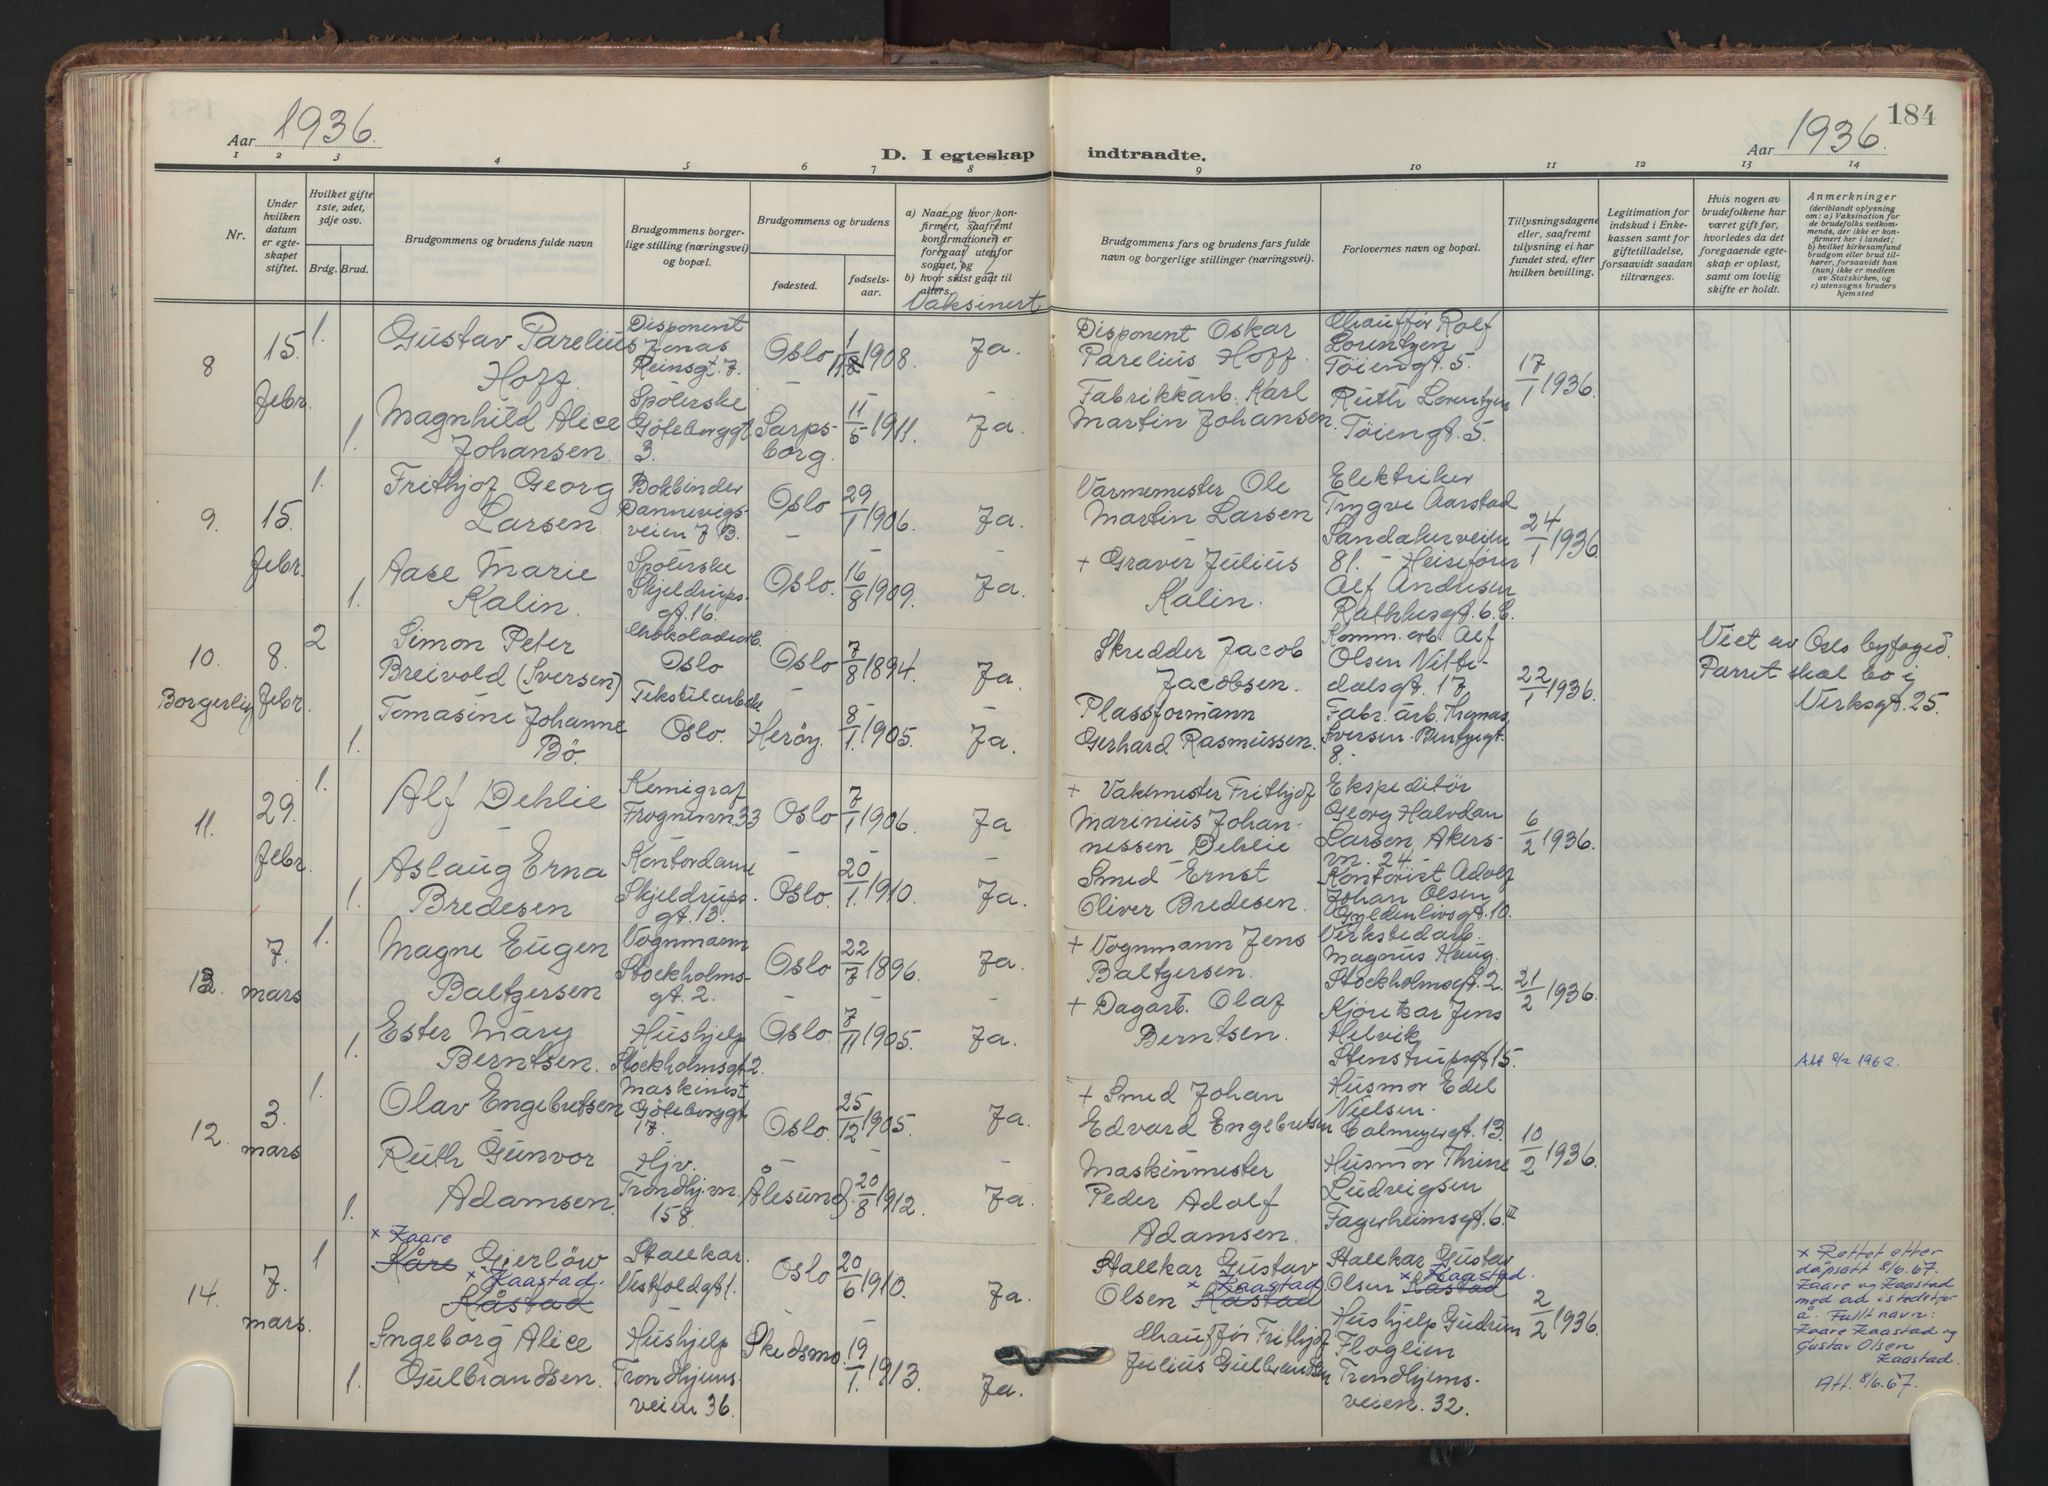 184
Aar 1936.
D. I egteskap indtraadte.
Aar 1936.
1 2 3 4 5 6 7 8 9 10 11 12 13 14
Nr.
Under hvilken datum er egteskapet stiftet.
Hvilket gifte 1ste, 2det, 3dje osv.
Brdg. Brud.
Brudgommens og brudens fulde navn
Brudgommens borgerlige stilling (næringsvei) og bopæl.
Brudgommens og brudens
fødested.
fødselsaar.
a) Naar og hvor konfirmert, saafremt konfirmationen er foregaat utenfor sognet, og
b) hvor sidst gaat til alters.
Vaksinert
Brudgommens fars og brudens fars fulde navn og borgerlige stillinger (næringsvei).
Forlovernes navn og bopæl.
Tillysningsdagene eller, saafremt tillysning ei har fundet sted, efter hvilken bevilling.
Legitimation for indskud i Enkekassen samt for giftetilladelse, forsaavidt saadan tiltrænges.
Hvis nogen av brudefolkene har været gift før, hvorledes da det foregaaende egteskap er opløst, samt om lovlig skifte er holdt.
Anmerkninger
(deriblandt oplysning om: a) Vaksination for de brudefolks vedkommende, der ikke er konfirmert her i landet; b) hvilket kirkesamfund brudgom eller brud tilhører, forsaavidt han (hun) ikke er medlem av Statskirken, og c) utensogns bruders hjemsted
8 15. febr. 1. Gustav Parelius Hoff. Disponent Jonas Reinsgt. 7. Oslo 1908. Ja.
Disponent Oskar Parelius Hoff. Chauffør Rolf Lorentzen Töiengt. 5. 17/1 1936.
1. Magnhild Alice Johansen. Spölerske Göteborggt. 3. Sarpsborg. 11/5 1911. Ja.
Fabrikkarb. Karl Martin Johansen. Ruth Lorentzen Töiengt. 5.
9. 15. febr. 1. Frithjof Georg Larsen. Bokbinder Dannevigsveien 7 B. Oslo 29/1 1906. Ja.
Varmemester Ole Martin Larsen Elektriker Trygve Aarstad Sandakerveien 81. 24/1 1936
1. Aase Marie Kalin. Spölerske Skjeldrupsgt. 16. Oslo. 16/8 1909. Ja.
+ Graver Julius Kalin. Heisefører Alf Andresen Rathkesgt. 6. C.
10. Borgerlig 8. febr. 2 Simon Peter Breivold (Iversen) Chokoladearb. Oslo Oslo 7/8 1894. Ja.
Skredder Jacob Jacobsen. Komm. arb. Alf Olsen Nittedalsgt. 17 22/1 1936.
Viet av Oslo byfoged. Parret skal bo i Verksgt. 25.
1. Tomasine Johanne Bö. Tekstilarbeiderske Oslo. Heröy. 8/1 1905. Ja.
Plassformann Gerhard Rasmussen. Fabr. arb. Iversen 8.
11. 29. febr. 1. Alf Dehlie Kemigraf Frognervn. 33 Oslo 7/1 1906. Ja
+ Vaktmester Frithjof Marinius Johannessen Dehlie Ekspeditör Georg Halvdan Larsen Akersvn. 24. 6/2 1936.
1. Aslaug Erna Bredesen Kontordame Skjeldrupsgt. 13. Oslo. 20/1 1910. Ja.
Smed Ernst Oliver Bredesen. Kontorist Adolf Johan Olsen Gyldenløvsgt. 10.
13. 7. mars 1. Magne Eugen Baltzersen Vognmann Stockholmsgt. 2. Oslo 22/7 1896. Ja.
+ Vognmann Jens Baltzersen. Verkstedarb. Magnus Haug. Stockholmsgt. 2. 21/2 1936.
1. Ester Mary Berntsen. Hushjelp Stockholmsgt. 2. Oslo. 7/11 1905. Ja.
+ Dagarb. Olaf Berntsen. Kjörekar Jens Helvik Stenstrupsgt 15.
Att 8/2 1962.
12. 3. mars 1. Olav Engebretsen Maskinist Göteborggt. 17. Oslo. 25/12 1905. Ja.
+ Smed Johan Edvard Engebretsen Husmor Edel Nielsen. Calmeyersgt. 13. 10/2 1936.
1. Ruth Gunvor Adamsen. Hjv. Trondhj.vn. 158. Ålesund. 20/8 1912. Ja.
Maskinmester Peder Adolf Adamsen. Husmor Thrine Ludvigsen Fagerheimsgt. 6. III
14. 7. mars. 1 x Kaare Kåre Gierlöw x Kaastad. Kåstad Stallkar. Vestfoldgt 1. Oslo 20/6 1910. Ja.
Stallkar Gustav Olsen x Kaastad Kåstad Stallkar Gustav Olsen x Kaastad. Kåstad 2/2 1936.
x Rettet etter dåpsatt 8/6.67. Kaare og Kaastad med aa istedetfor å. Fullt navn: Kaare Kaastad og Gustav Olsen Kaastad. Att. 8/6.67.
1. Ingeborg Alice Gulbrandsen. Hushjelp Trondhjemsveien 36. Skedsmo. 19/1 1913. Ja.
Chauffør Frithjof Julius Gulbrandsen Hushjelp Gudrun Floglien Trondhjemsveien. 32.